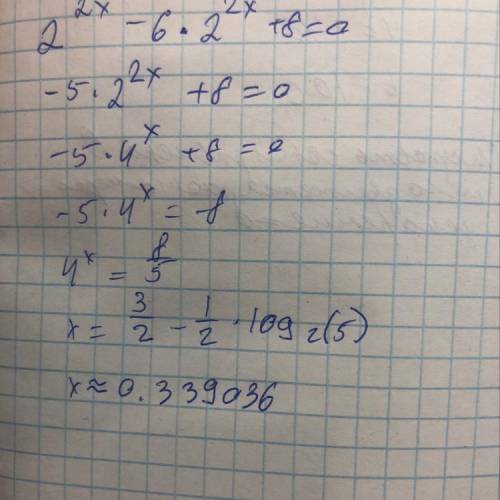 2^{2x} - 6 · 2^{2x} + 8 = 0
-5 · 2^{2x} + 8 = 0
-5 · 4^x + 8 = 0
-5 · 4^x = -8
4^x = 8/5
x = 3/2 - 1/2 · log_2(5)
x ≈ 0.339036